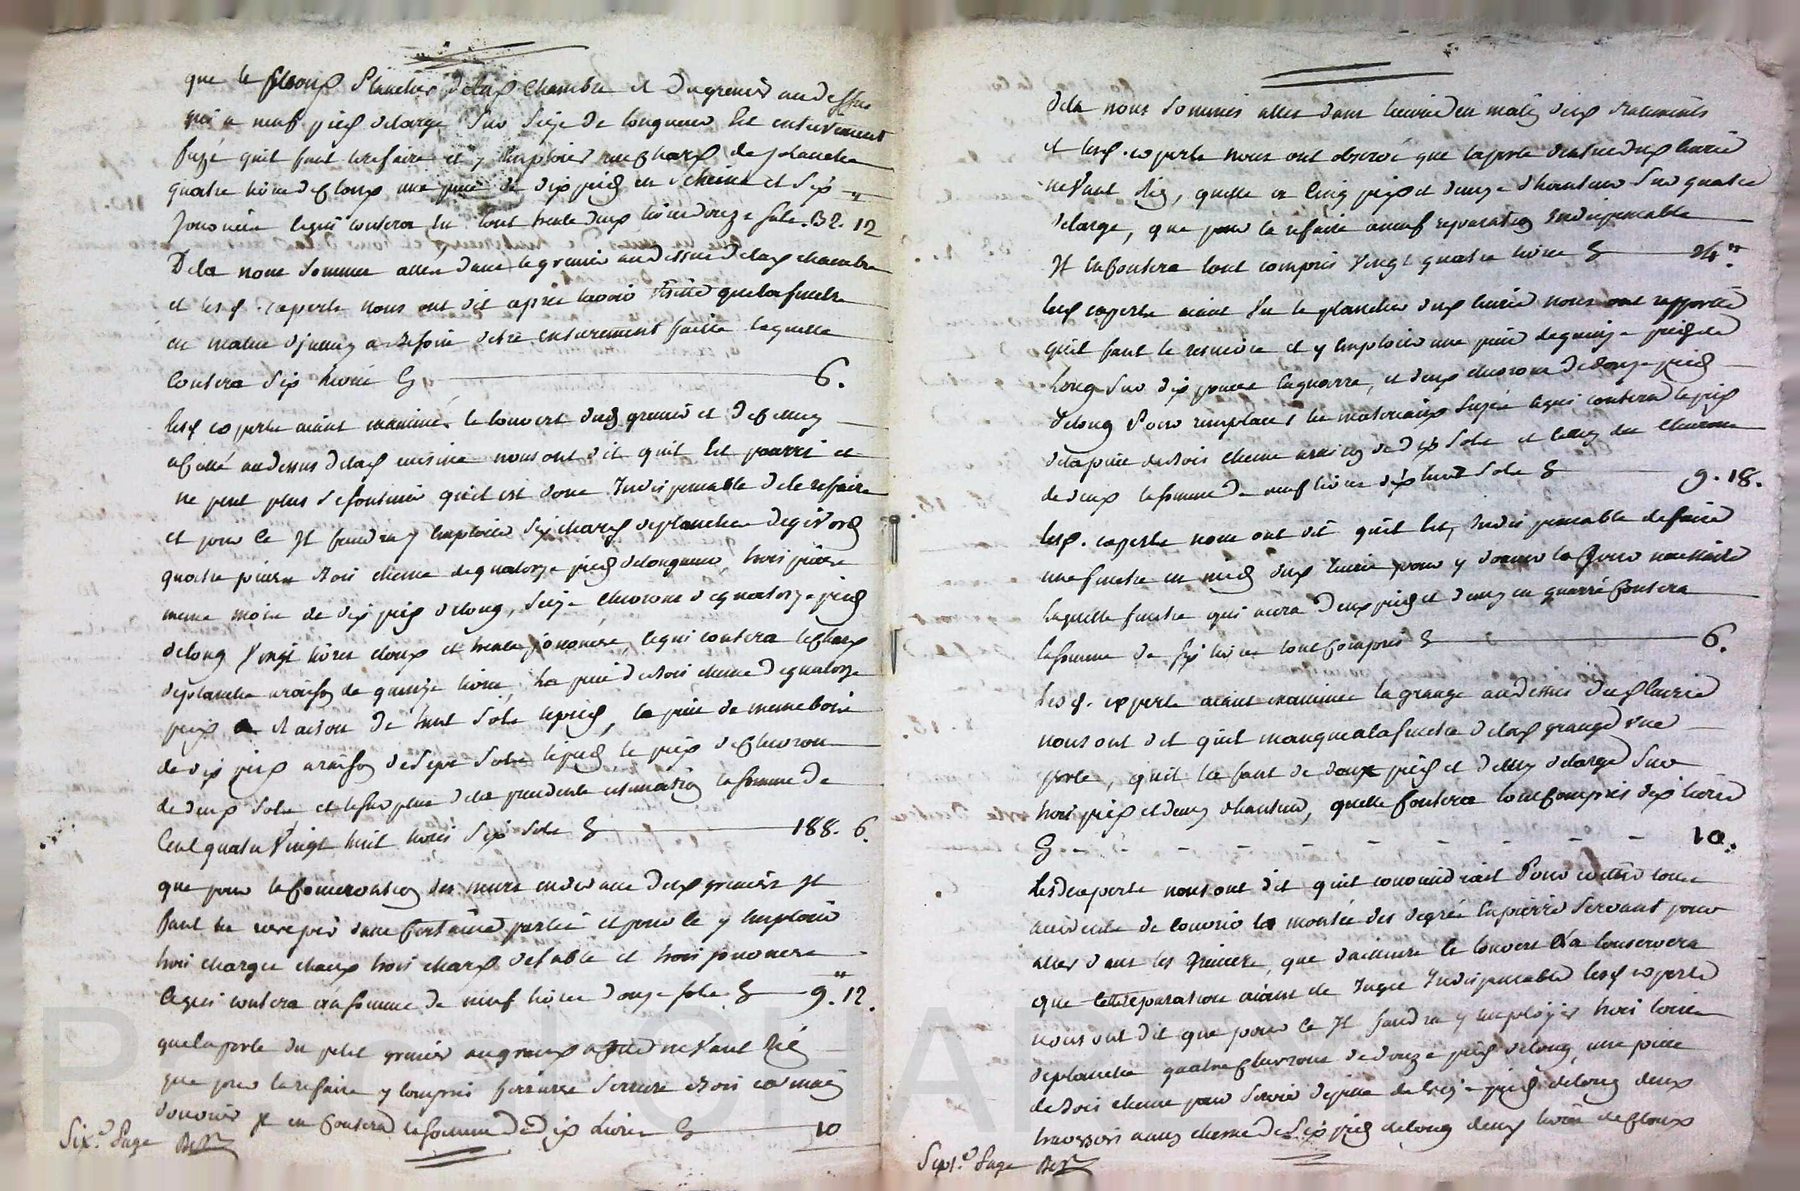 que le plancher de lad chambre et du grenier au dessus
qui a neuf pieds de large sur seize de longueur est entierement
fuzé quil faut le refaire et y emploier un chars de planche
quatre livres de cloux une piece de dix pieds en chene et six
journées lequi coutera en tout trente deux livres douze sols. 32. 12
De la nous sommes allés dans le grenier au dessus de lad chambre
et lesd. experts nous ont dit apres lavoir visité que la fenetre
en matin a besoin detre entierement faitte laquelle
coutera six livres 6.
lesd experts aiant examiné le couvert dud grenier et de celluy
a coté au dessus de lad cuisine nous ont dit quil est pourri et
ne peut plus se soutenir quil est donc Indispensable de le refaire
et pour ce Il faudra y emploier six chars de planches de givord
quatre pieces bois chene de quatorze pieds de longueur, trois pieces
meme bois de dix pieds de long, seize chevrons de quatorze pieds
de long vingt livres cloux et trente journées, lequi coutera le chars
de planche a raison de quinze livres, la piece de bois chene de quatorze
pieds a raison de huit sols le pied, la piece de meme bois
de dix pieds a raison de sept sols le pied, le pied de chevron
de deux sols et le surplus de la prudente estimation la somme de
Cent quatre vingt huit livres six sols 188. 6.
que pour la conservation des murs dud grenier Il
faut les en certaine partie et pour ce y emploier
trois charges chaux trois chars de sable et trois journées
lequi coutera la somme de neuf livres douze sols 9. 12.
que la porte du petit grenier au grand ne vaut rien
que pour la refaire y compris ferrure serrure bois et main
douvrier Il en coutera la somme de Dix Livres 10
Six.e Page
dela nous sommes allés dans lecurie en matin desd batiments
et lesd. experts nous ont observé que la porte dentrée dud lecurie
ne vaut rien, quelle a cinq pieds et demy de hauteur sur quatre
de large, que pour la refaire aussy reparation Indispensable
Il en coutera tout compris vingt quatre livres 24.
lesd experts aiant vu le plancher dud lecurie nous ont rapporté
quil faut le remettre et y emploier une piece de quinze pieds de
long sur dix pouces en quarré, et deux chevrons de douze pieds
de long Pour remplacer les materiaux fuzés lequi coutera le pied
de la piece de bois chene a raison de dix sols et celluy des chevrons
de deux la somme de neuf livres dix huit sols 9. 18.
lesd. experts nous ont dit quil est Indispensable de faire
une fenetre en midy dud lecurie pour y donner le jour necessaire
laquelle fenetre qui aura deux pieds et demy en quarré coutera
la somme de six livres tout compris 6.
lesd. experts aiant examiné la grange au dessus dud lecurie
nous ont dit quil manque a la fenetre de lad grange une
porte, quil la faut de deux pieds et demy de large sur
trois pieds et demy de hauteur, quelle coutera tout compris dix livres
10.
Lesd experts nous ont dit quil conviendrait Pour eviter tous
accidents de couvrir la montée des degrés en pierre servant pour
aller dans les greniers, que dailleurs le couvert la conservera
que cette reparation aiant été jugée Indispensable lesd experts
nous ont dit que pour ce Il faudra y employer trois
de planche quatre chevrons de douze pieds de long, une piece
de bois chene pour servir de panne de seize pieds de long deux
traversiers aussy chene de six pieds de long deux livres de cloux
Sept.e Page